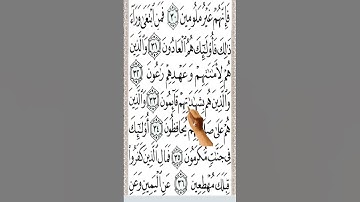 فَإِنَّهُمْ غَيْرُ مَلُومِينَ ٣٠ فَمَنِ ابْتَغَىٰ وَرَاءَ
ذَٰلِكَ فَأُولَٰئِكَ هُمُ الْعَادُونَ ٣١ وَالَّذِينَ
هُمْ لِأَمَانَاتِهِمْ وَعَهْدِهِمْ رَاعُونَ ٣٢
وَالَّذِينَ هُمْ بِشَهَادَاتِهِمْ قَائِمُونَ ٣٣ وَالَّذِينَ
هُمْ عَلَىٰ يُحَافِظُونَ ٣٤ أُولَٰئِكَ
فِي جَنَّاتٍ مُكْرَمُونَ ٣٥ فَمَالِ الَّذِينَ كَفَرُوا
قِبَلَكَ مُهْطِعِينَ ٣٦ عَنِ الْيَمِينِ وَعَنِ